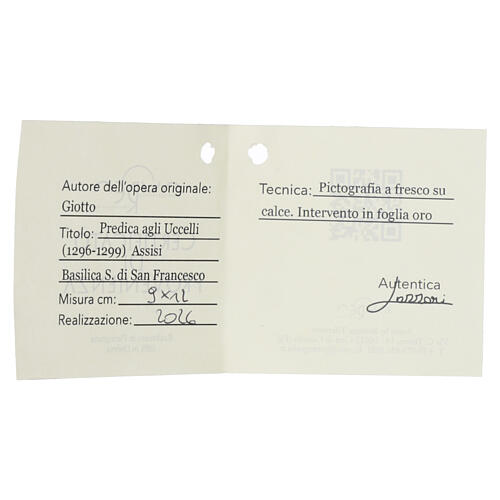 Autore dell'opera originale:
Giotto
Titolo: Predica agli Uccelli
(1296-1299) Assisi
Basilica S. di San Francesco
Misura cm: 9x12
Realizzazione: 2026
Tecnica: Pictografia a fresco su
calce. Intervento in foglia oro
Autentica